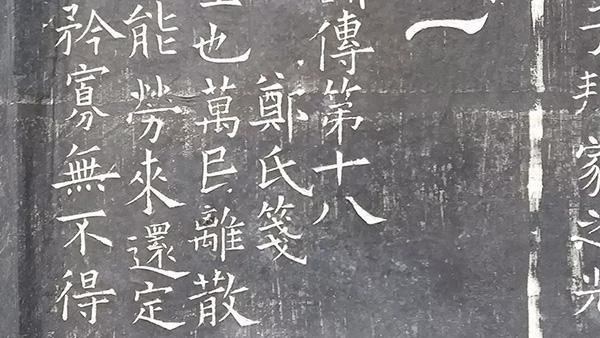 邦家之光
一
傳第十八
鄭氏箋
也萬民離散
能勞來還定
矜寡無不得